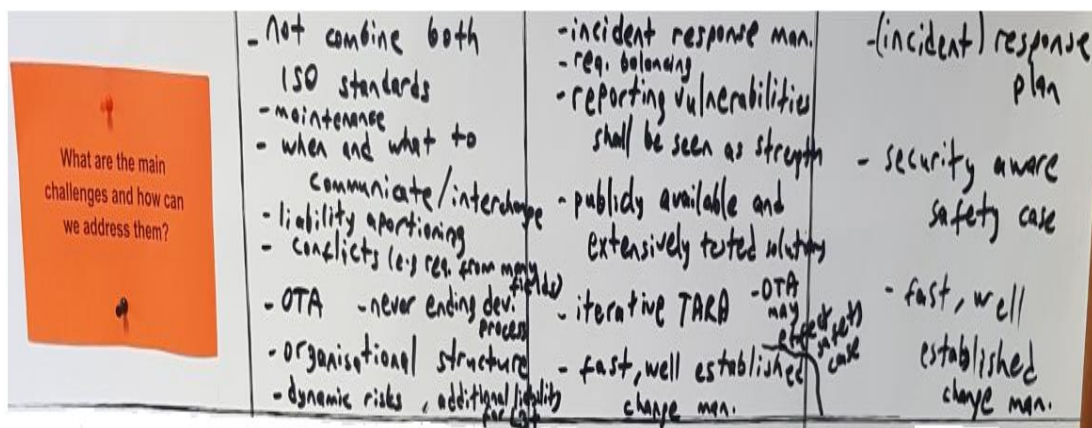 What are the main
challenges and how can
we address them?
- not combine both
ISO standards
- maintenance
- when and what to
communicate/interchange
- liability aportioning
- conflicts (e.g req. from many
fields)
- OTA - never ending dev.
process
- organisational structure
- dynamic risks, additional liability
- incident response man.
- req. balancing
- reporting vulnerabilities
shall be seen as strength
- publicly available and
extensively tested solutions
- iterative TARA
- OTA
may
effect
safety
case
- fast, well established
change man.
- (incident) response
plan
- security aware
safety case
- fast, well
established
change man.